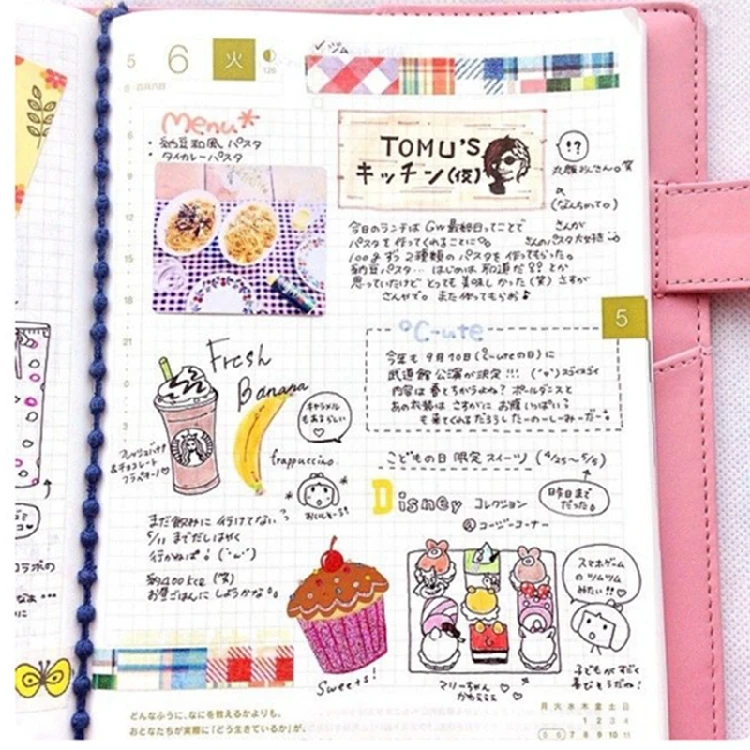 5 6 火
ジム
Menu
・納豆和風パスタ
・タイカレーパスタ
TOMU'S
キッチン(仮)
!?
(なんちめって)
今日のランチは GW最終日ってことで
パスタを作ってくれることに
100gずつ 2種類のパスタを作ってもらった。
納豆パスタ… はじめは 邪道だ?? とか
思っていたけど とっても美味しかった(笑) さすが
さんやで。また作ってもらお♪
5
℃-ute
今年も 9月10日(℃-uteの日)に
武道館公演が決定!!!
内容は 春とちがうよね? ポールダンスと
あの衣装は さすがに お腹いっぱい
も来てくれるだろうし たーのーしーみーすぎー
Fresh
Banana
キャラメル
もあるらしい
frappuccino
フレッシュバナナ
&チョコレート
フラペチーノ
まだ飲みに行けてない
5/11 までだし はやく
行かねば!
約400kcal (笑)
お昼ごはんに しようかな
こどもの日 限定 スイーツ (4/25〜5/5)
昨日まで
だった
Disney コレクション
@コージーコーナー
スマホゲーム
の ツムツム
みたい!!
Sweets!
マリーちゃん
かわええ
子どもがすごく
喜びそうだね!
どんなふうに、なにを教えるかよりも、
おとなたちが実際に「どう生きているか」が、
月 火 水 木 金 土 日
1 2 3 4
5 6 7 8 9 10 11